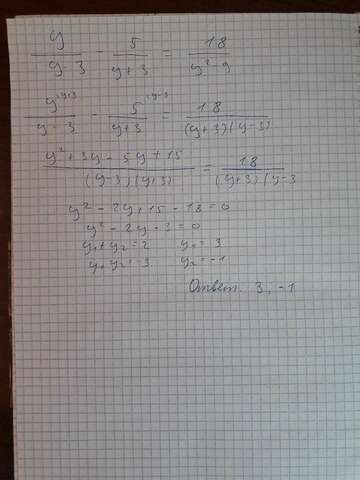 y/(y-3) - 5/(y+3) = 18/(y²-9)
y^(·y+3)/(y-3) - 5^(·y-3)/(y+3) = 18/((y+3)(y-3))
(y²+3y-5y+15)/((y-3)(y+3)) = 18/((y+3)(y-3
y²-2y+15-18=0
y²-2y-3=0
y₁+y₂=2 y₁=3
y₁y₂=-3 y₂=-1
Ответ. 3, -1